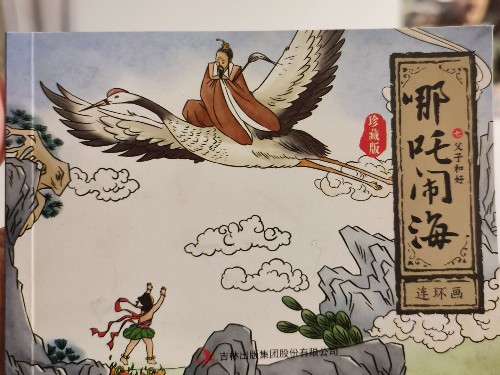 哪吒闹海
七 父子和好
珍藏版
连环画
吉林出版集团股份有限公司